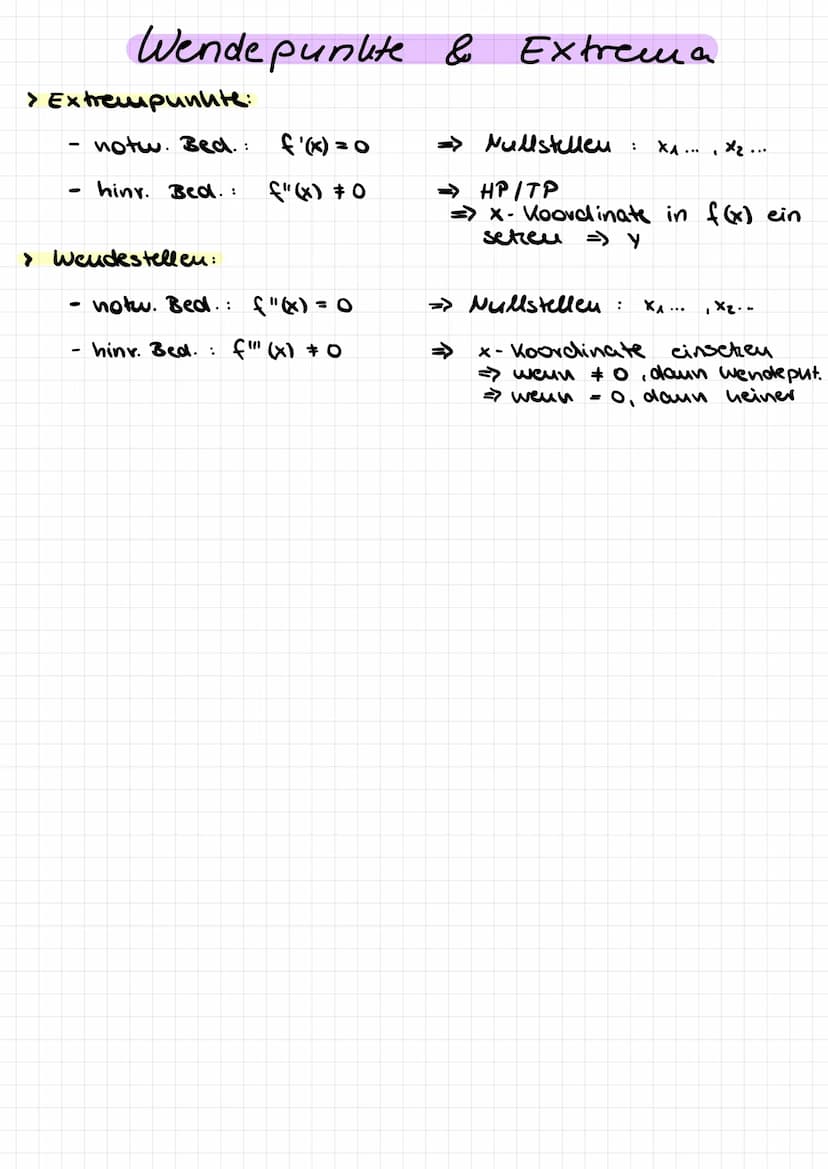 Wendepunkte & Extrema
> Extrempunkte:
- notw. Bed.: f'(x) = 0 ⇒ Nullstellen : x₁ ... , x₂ ...
- hinr. Bed.: f''(x) ≠ 0 ⇒ HP/TP
⇒ x-Koordinate in f(x) ein
setzen ⇒ y
> Wendestellen:
- notw. Bed.: f''(x) = 0 ⇒ Nullstellen : x₁ ... , x₂ ..
- hinr. Bed. : f'''(x) ≠ 0 ⇒ x-Koordinate einsetzen
⇒ wenn ≠ 0, dann Wendepkt.
⇒ wenn = 0, dann keiner